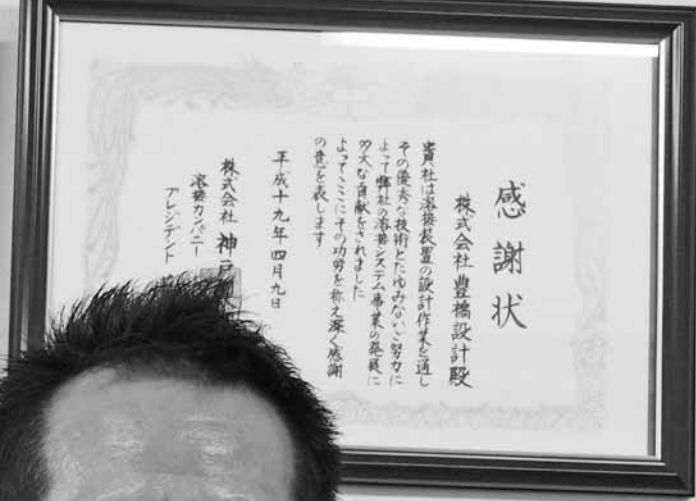 感謝状
株式会社豊橋設計殿
貴社は溶接装置の設計作業を通し
その優秀な技術とたゆみないご努力に
よって弊社の溶接システム事業の発展に
多大な貢献をされました
よってここにその功労を称え深く感謝
の意を表します
平成十九年四月九日
株式会社 神戸
溶接カンパニー
プレジデント